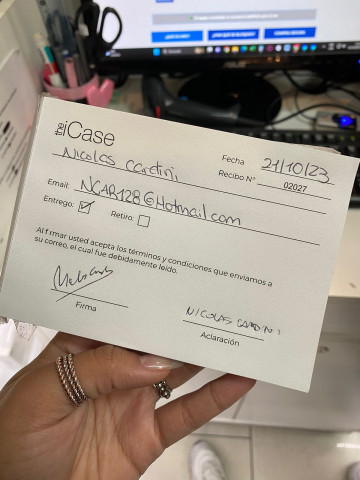 the iCase
Fecha 21/10/23
Nicolas Cardini
Recibo N° 02027
Email: NCAR128@Hotmail.com
Entrego: ☑ Retiro: ☐
Al firmar usted acepta los términos y condiciones que enviamos a
su correo, el cual fue debidamente leído.
Firma
NICOLAS CARDINI
Aclaración